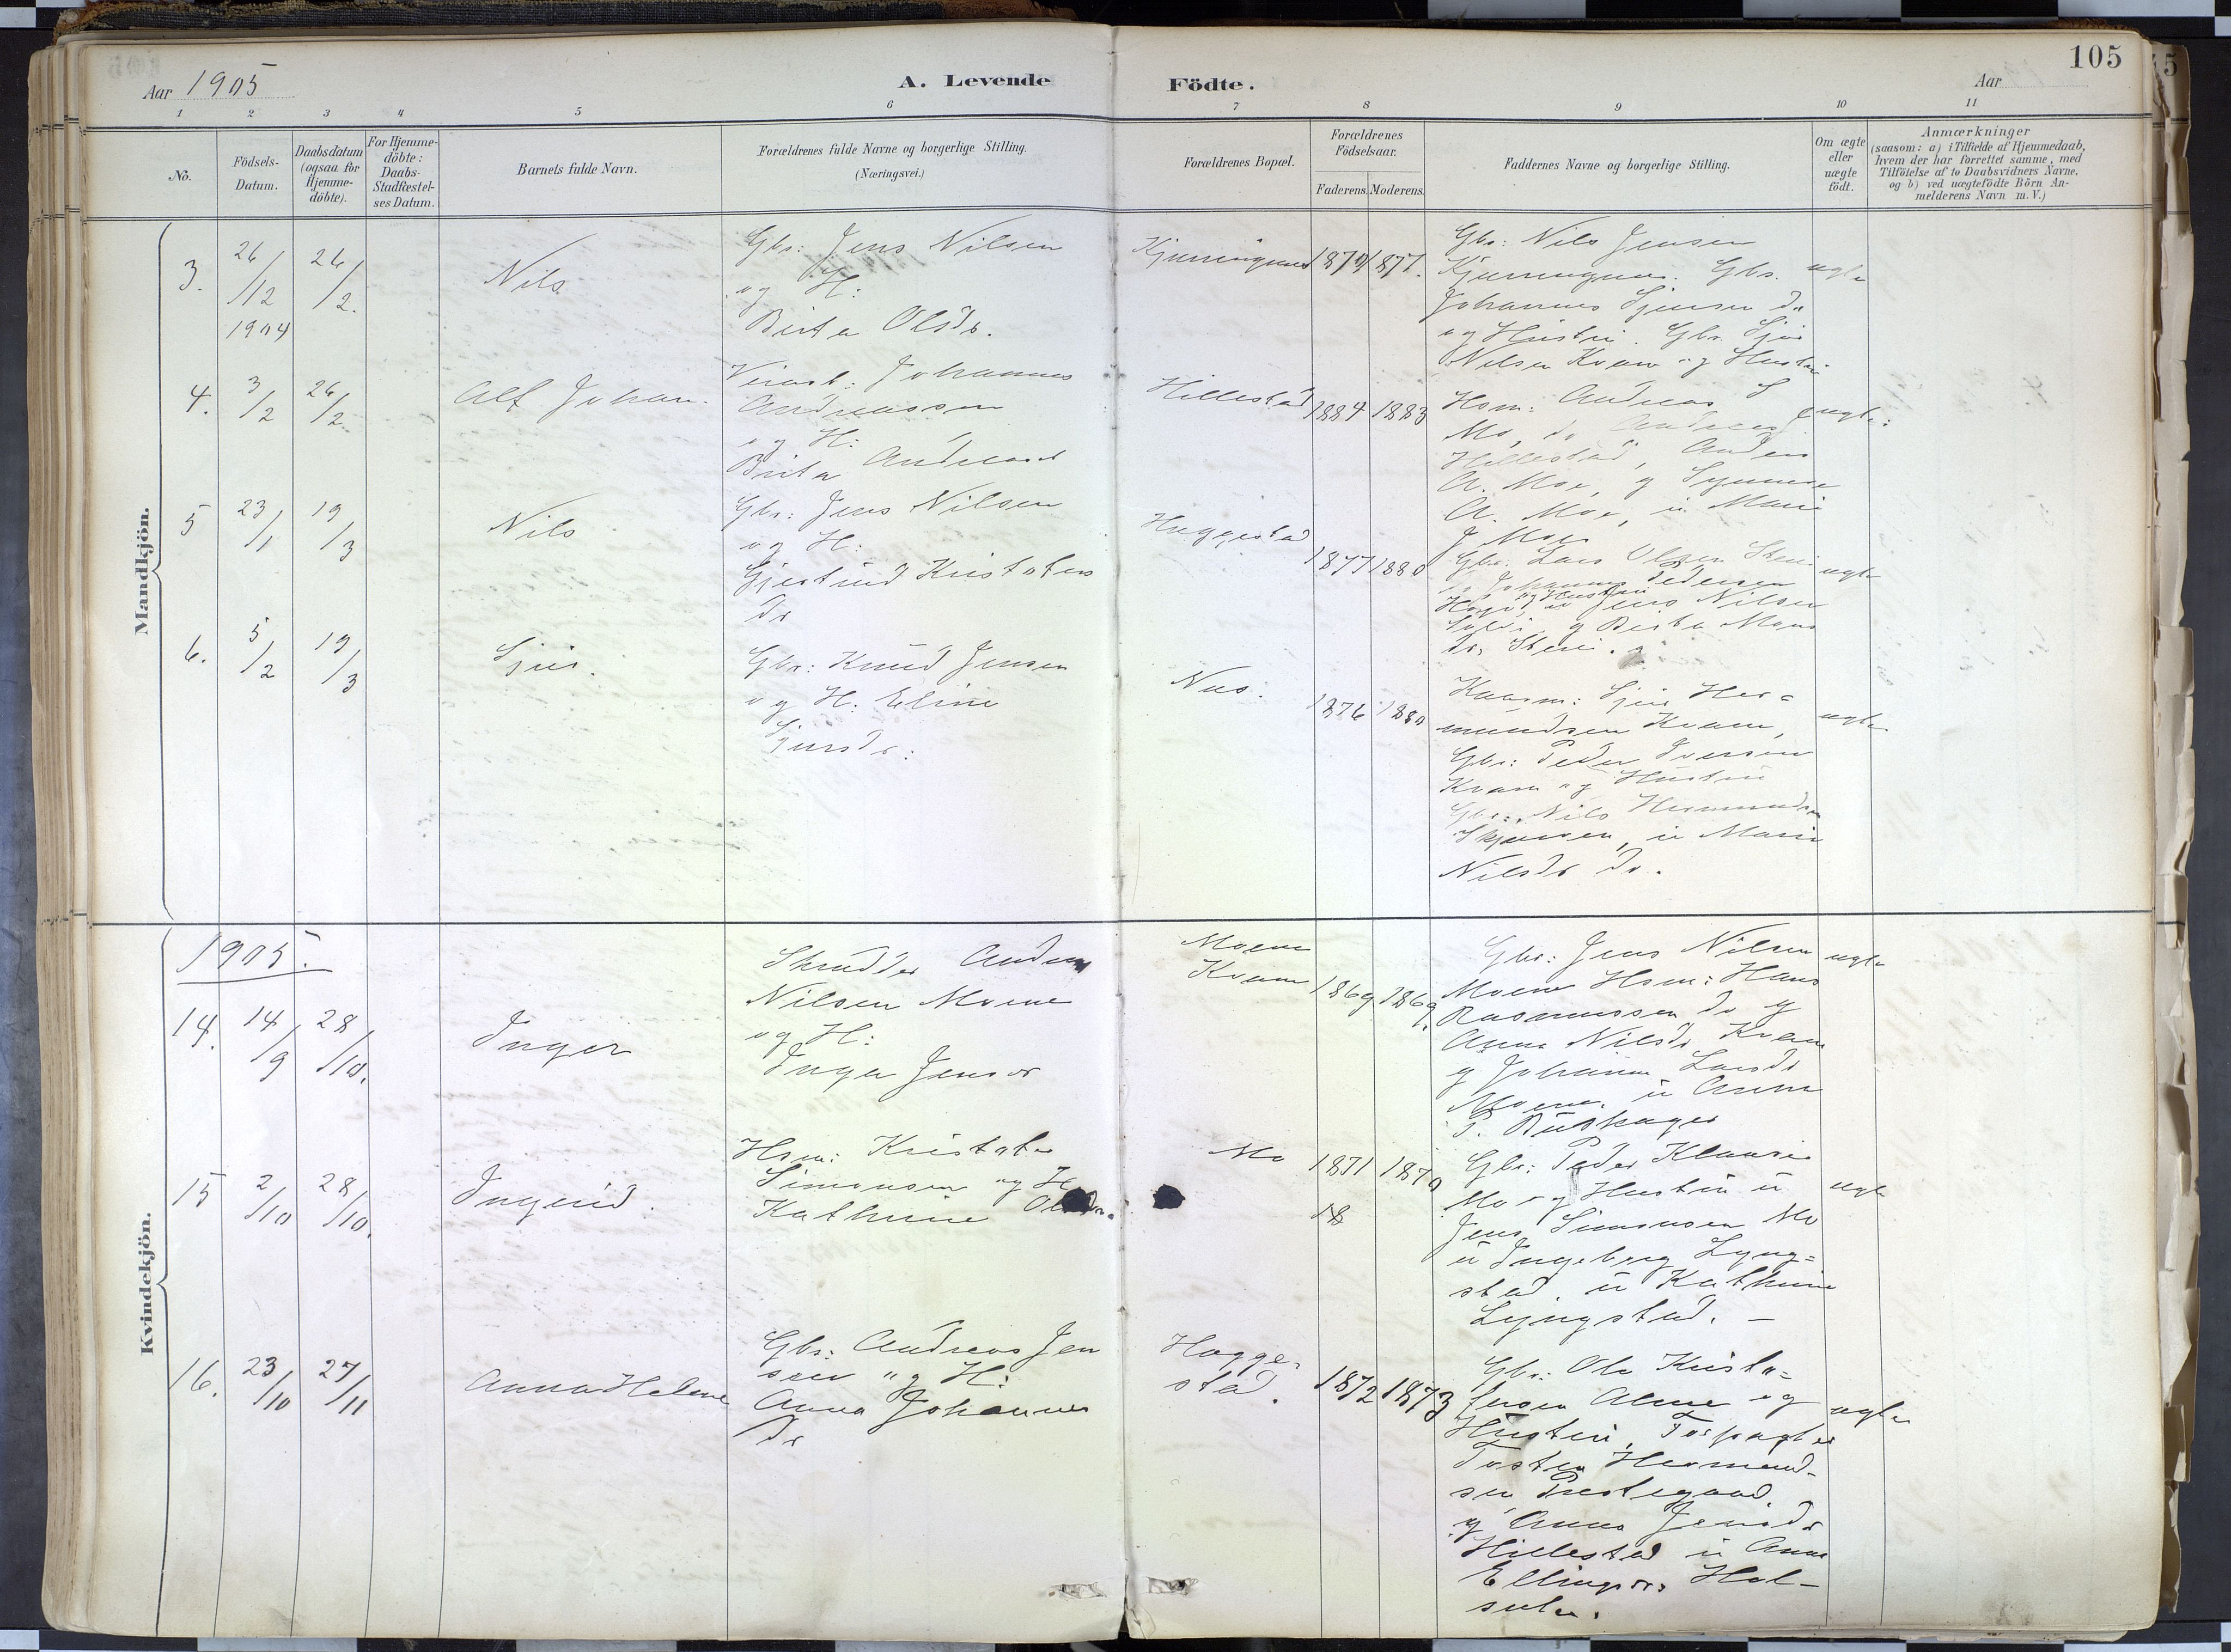 105
Aar 1905
A. Levende Födte.
Aar
1 2 3 4 5 6 7 8 9 10 11
No.
Födsels-Datum.
Daabsdatum (ogsaa for Hjemme-döbte).
For Hjemme-döbte: Daabs-Stadfæstel-ses Datum.
Barnets fulde Navn.
Forældrenes fulde Navne og borgerlige Stilling. (Næringsvei.)
Forældrenes Bopæl.
Forældrenes Födselsaar.
Faderens. Moderens.
Faddernes Navne og borgerlige Stilling.
Om ægte eller uægte födt.
Anmærkninger
(saasom: a) i Tilfælde af Hjemmedaab,
hvem der har forrettet samme, med
Tilföielse af to Daabsvidners Navne,
og b) ved uægtefödte Börn An-
melderens Navn m. V.)
Mandkjön.
3.
26/12 1904
26/2.
Nils
Gbr: Jens Nilsen
og H:
Birta Olsdr.
1877.
Gbr: Nils Jensen
Gbr.
Johannes Sjursen do
og Hustru. Gbr. Sjur
Nilsen Kvam og Hustru
ægte
4.
3/2
26/2.
Alf Johan.
Johannes
Andreassen
og H:
Birta
Hillestad
1884
1883
Hsm: Andreas
Mo, do Andreas
Hillestad, Anders
A. Moe, og Synneve
A. Moe, u Marie
J Moe
ægte:
5
23/1
19/3
Nils
Gbr: Jens Nilsen
og H:
Gjertrud Kristofers
dr
Haggestad
1877
1880
Gbr: Lars Olsen
Johannes Pedersen
og Hustru
Jens Nilsen
og Berta Mons
dr
ægte
6.
5/2
19/3
Sjur.
Gbr: Knud Jensen
og H: Eline
Sjursdr:
Nes.
1876
1880
Sjur Her=
mundsen Kvam,
Gbr: Peder Iversen
Kvam og Hustru
Gbr: Nils Hermundsen
u Marie
Nilsdr do.
ægte
Kvindekjön.
1905.
14.
14/9
28/10.
Inger
Skrædder Anders
Nilsen Moene
og H:
Inger Jensdr
Moene
Kvam
1869
1869.
Gbr: Jens Nilsen
Moene Hsm: Hans
Rasmussen do og
Anna Nilsdr Kvam
og Johanne Larsdr
Moene. u Anna
P.
ægte
15
2/10
28/10.
Ingrid.
Hsm: Kristofer
Simonsen og H
Kathrine
Mo
1871
1870
18
Gbr: Peder Klausen
Mo og Hustru u
Jens Simonsen Mo
u Ingeborg Lyng=
stad. u Kathrine
Lyngstad. –
ægte
16.
23/10
27/11
Anna Helene
Gbr: Andreas Jen
sen og H:
Anna Johannes
dr
Hagge-
stad.
1872
1873
Gbr: Ole Kristo=
fersen Alme og
Hustru, Forpagter
Tosten Hermund-
sen Prestegaard,
og Anna Jensdr
Hillestad u Anna
Ellingsdr.
ægte